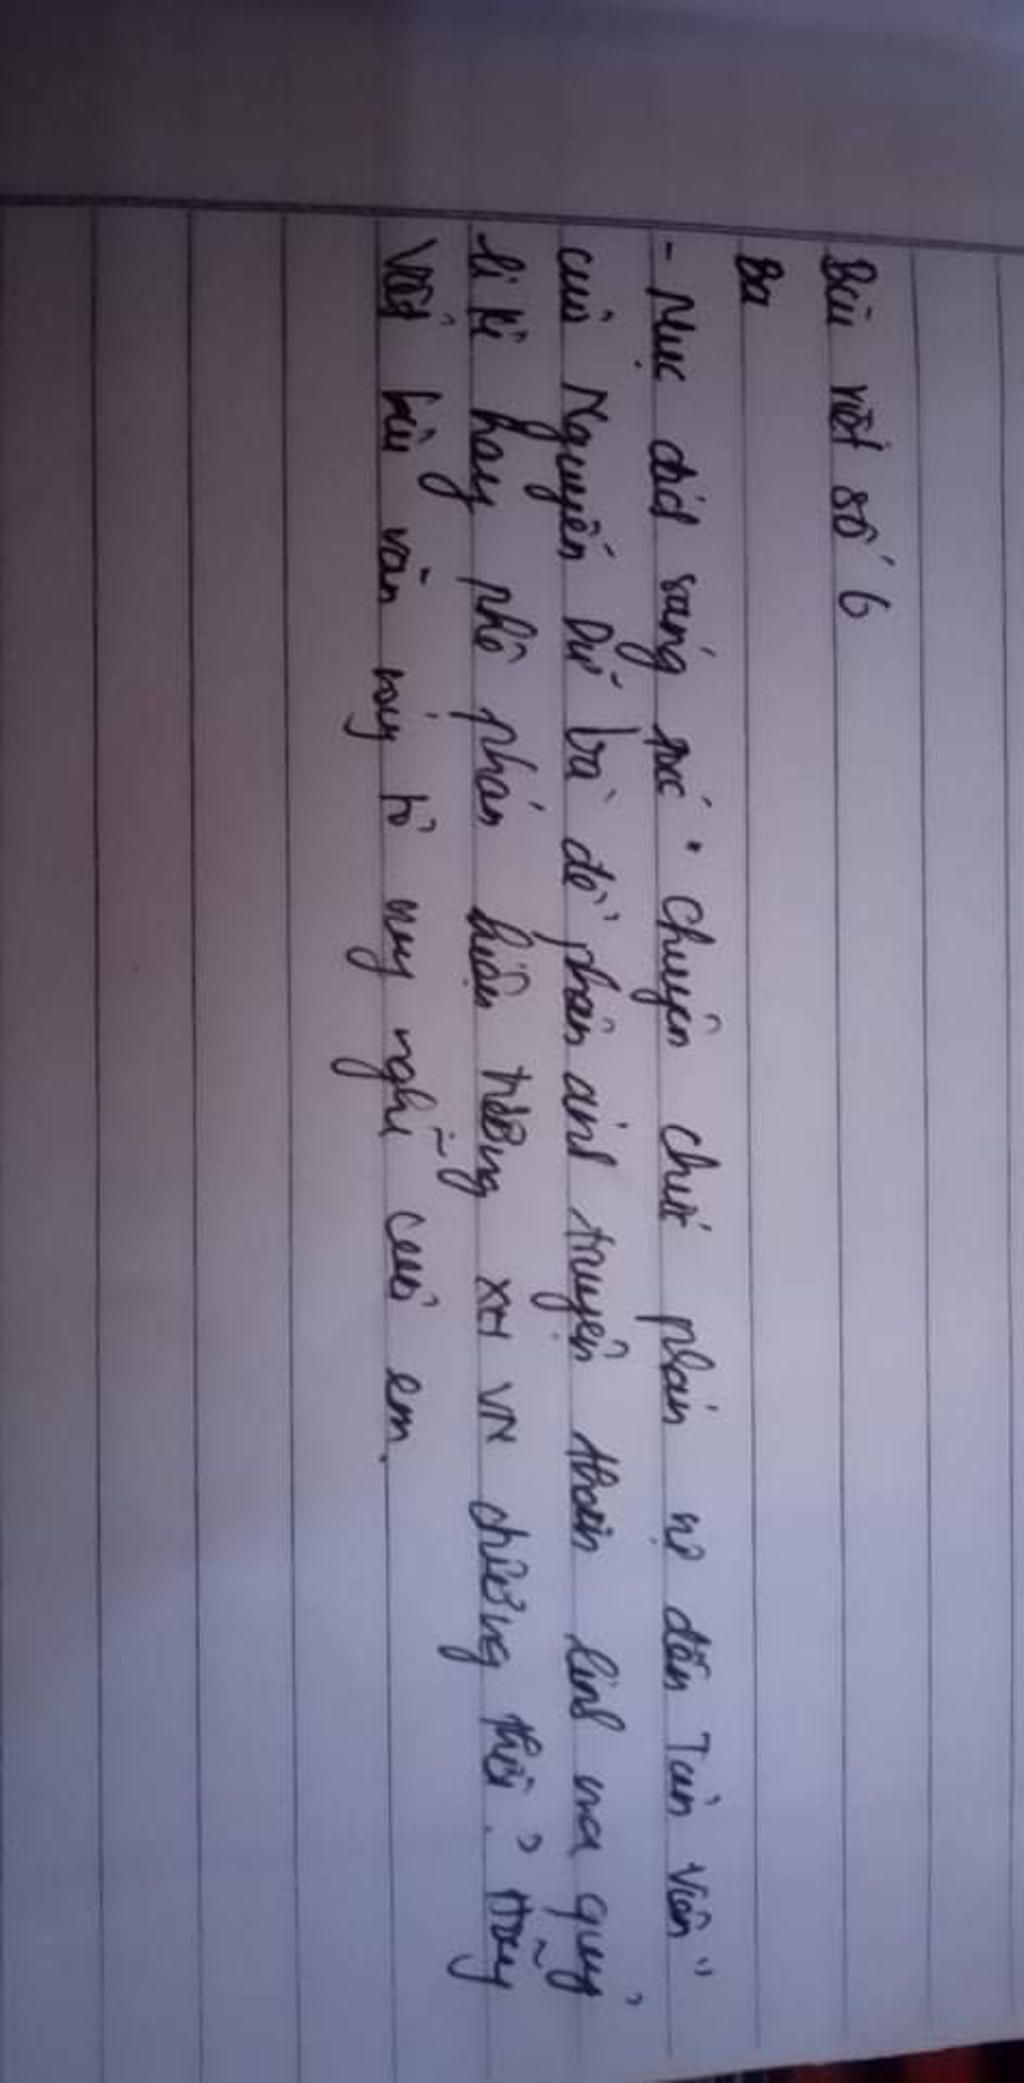 Bài viết số 6
Ba
- Mục đích sáng tác " chuyện chức phán sự đền Tản Viên "
của Nguyễn Dữ là để phản ánh truyện thần linh ma quỷ
li kì hay phê phán hiện tượng XH VN đương thời. ? Hãy
viết bài văn bày tỏ suy nghĩ của em.